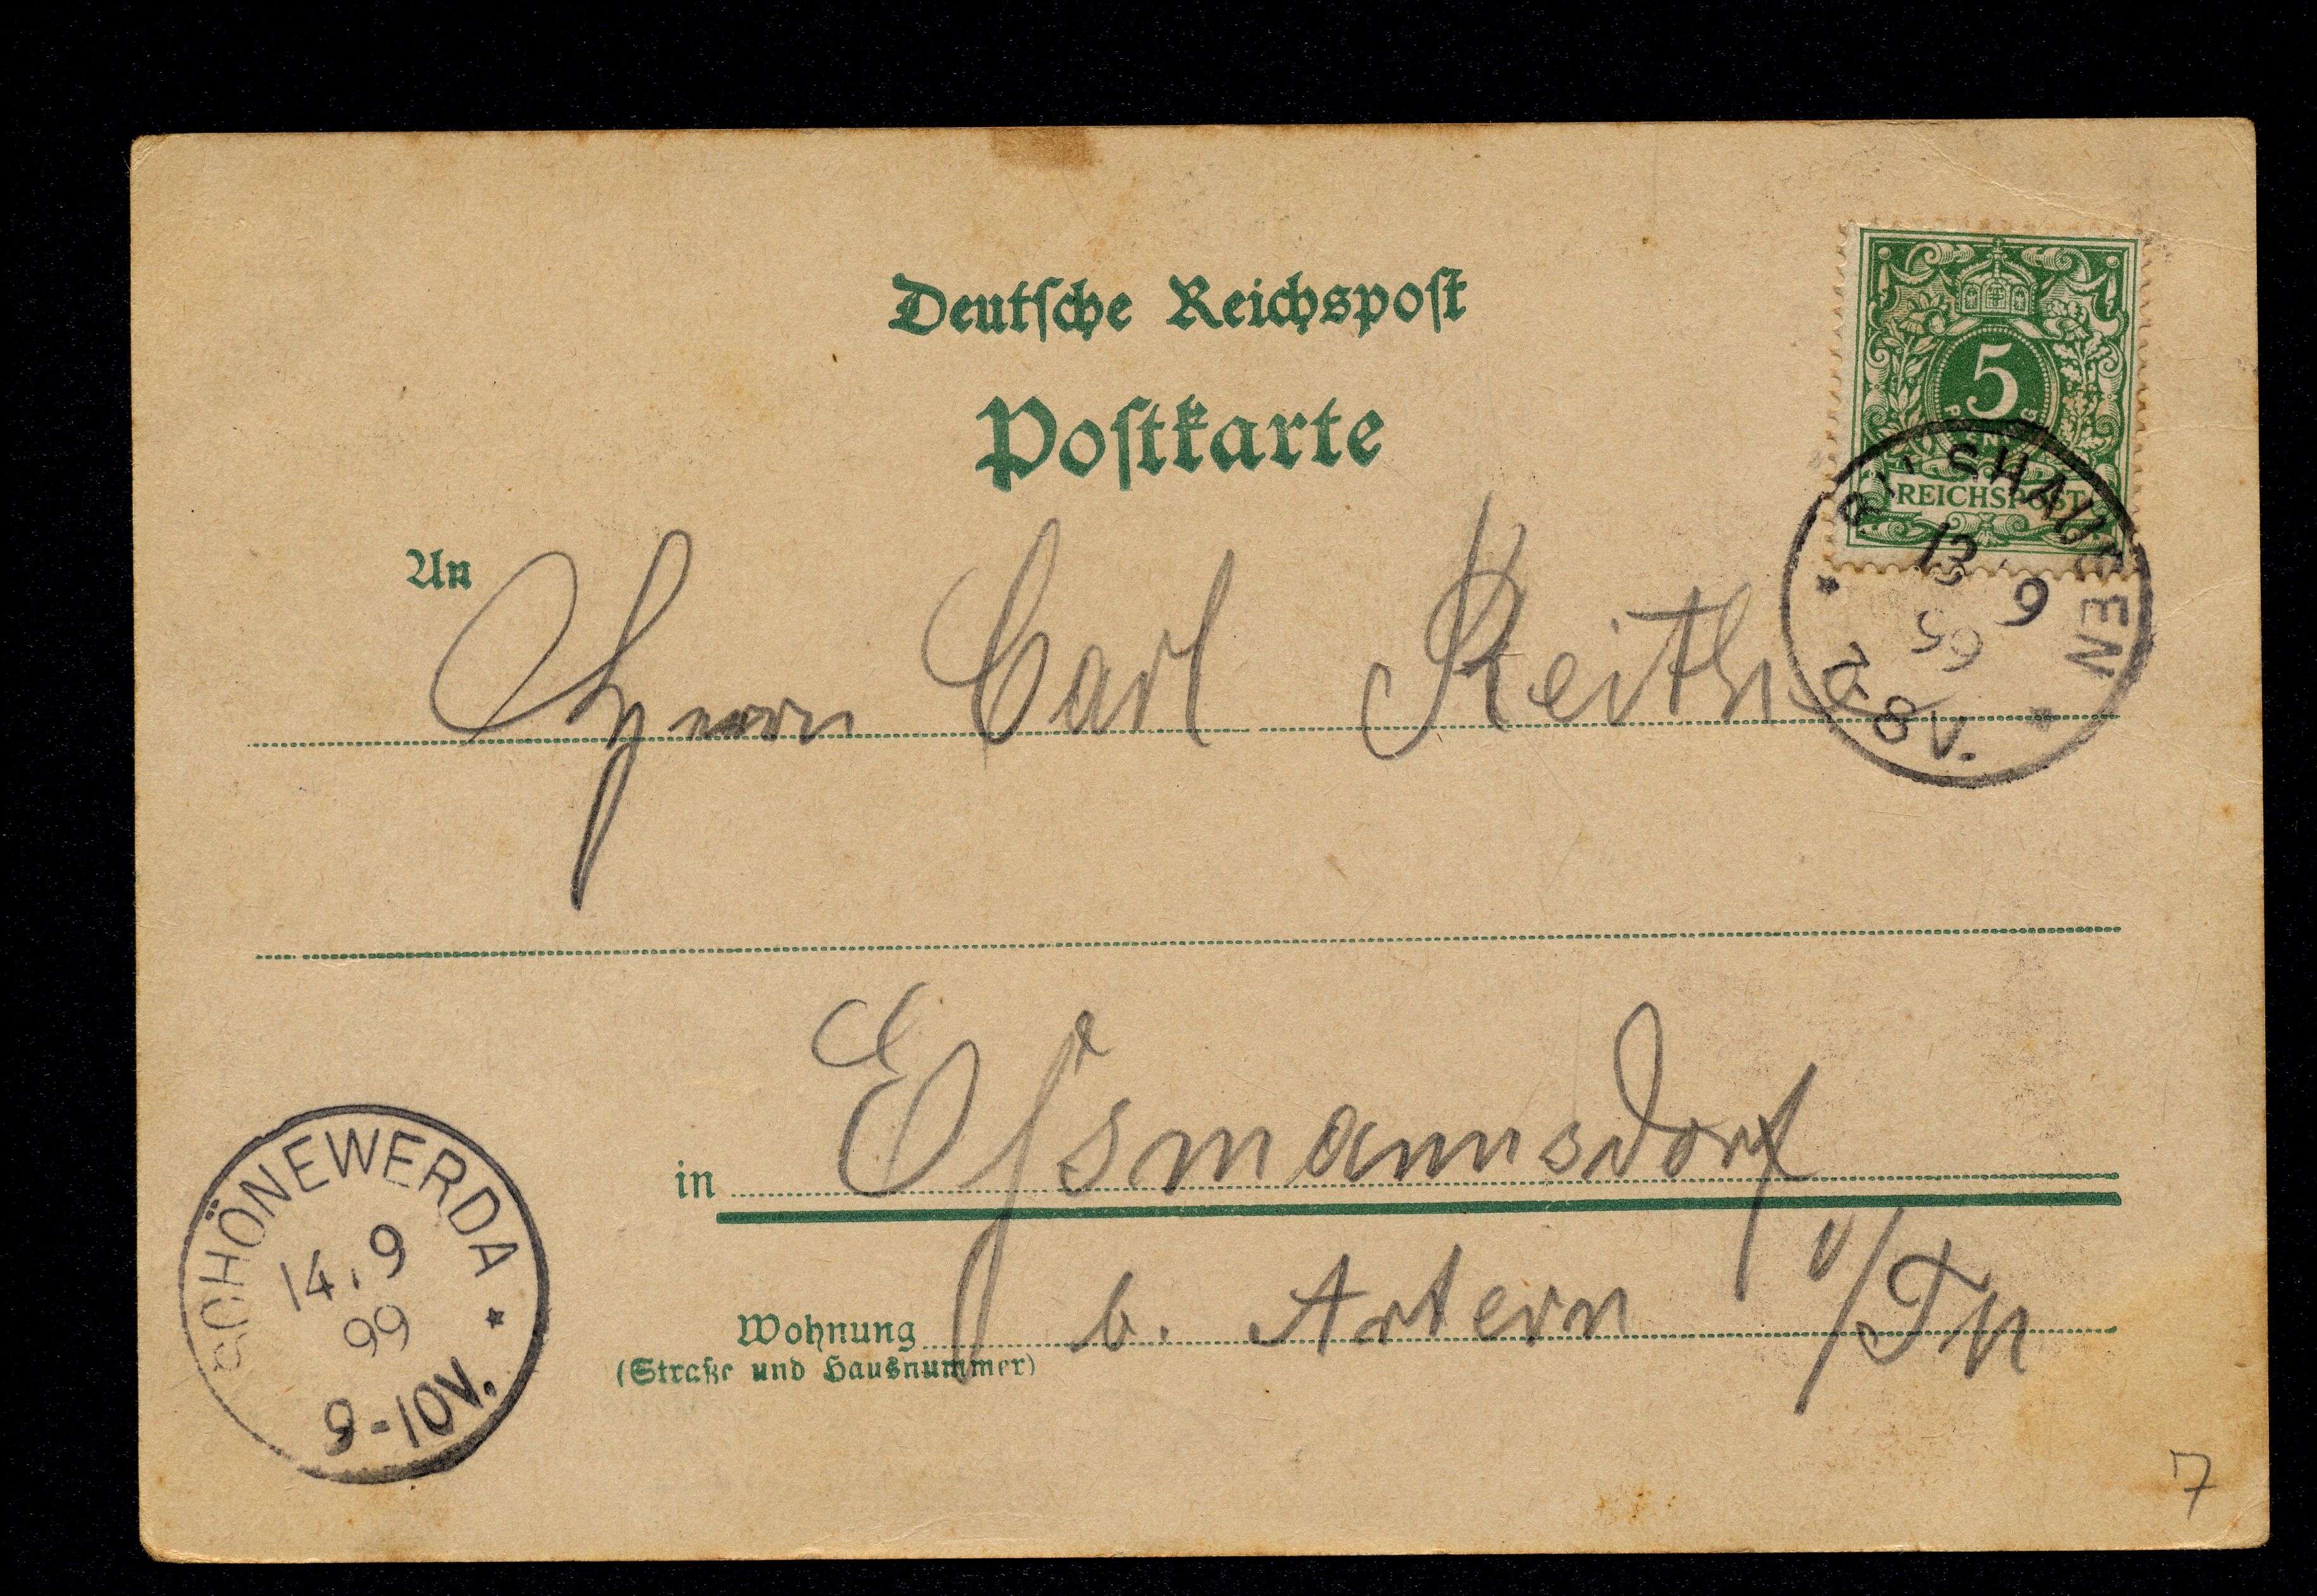 Deutsche Reichspost
Postkarte
5
PFENNIG
REICHSPOST
13 9
99
7-8V.
An Herrn Carl Reith
in Eßmannsdorf
Wohnung b. Artern i/Th
(Straße und Hausnummer)
SCHÖNEWERDA
14.9
99
9-10V.
7